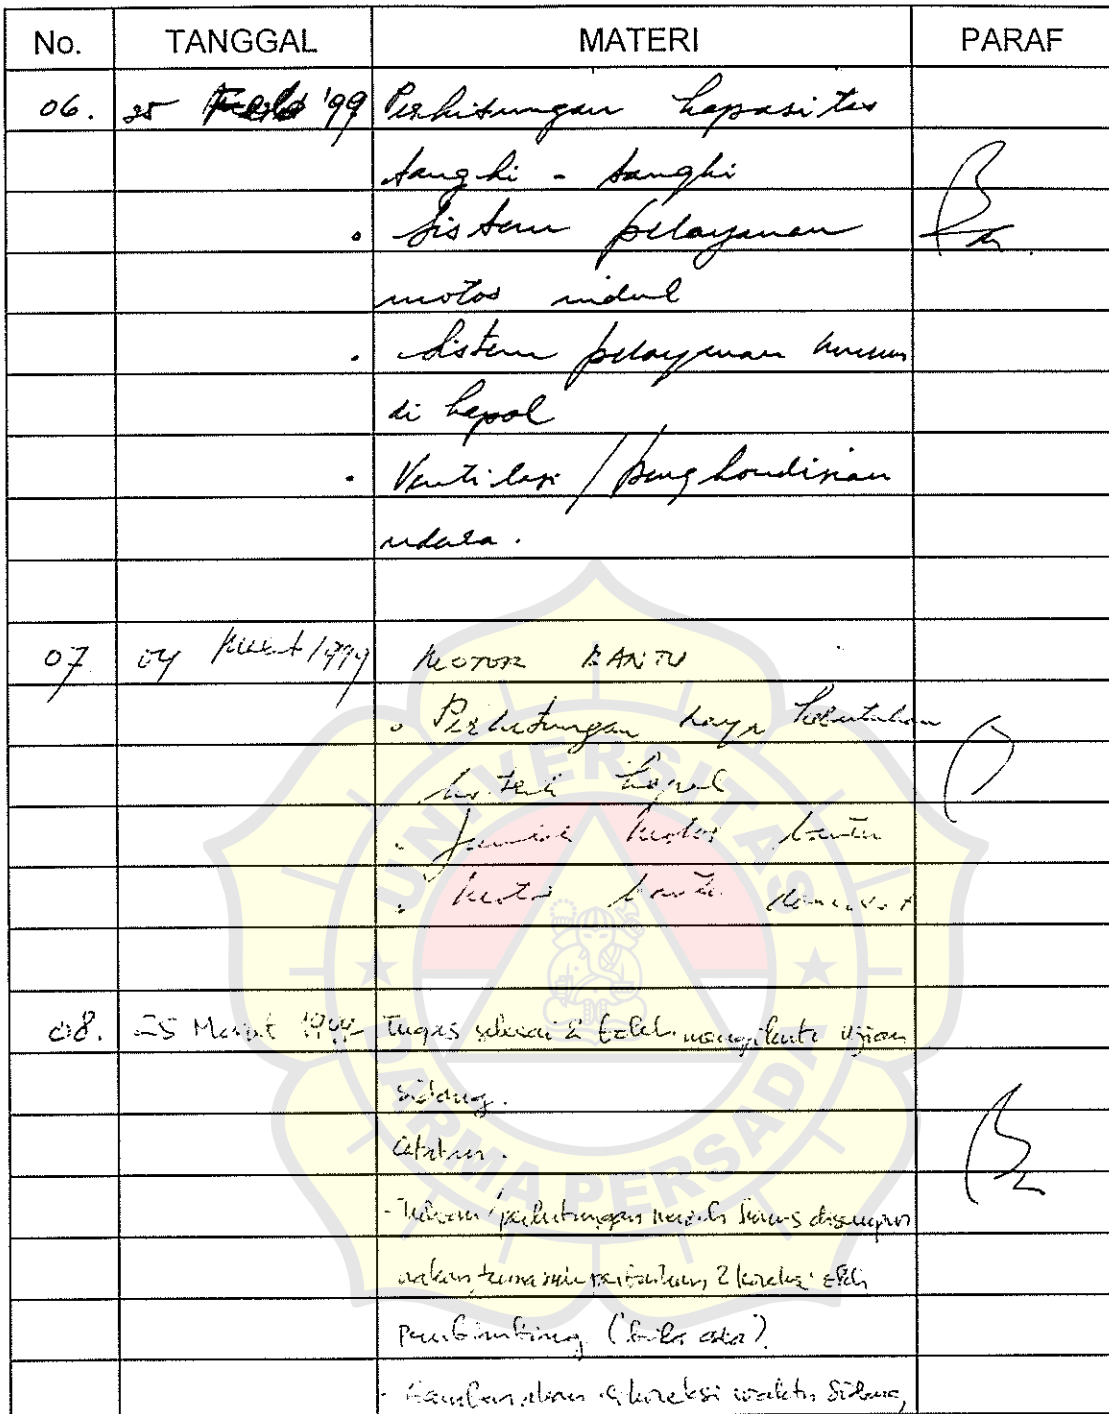 No. TANGGAL MATERI PARAF
06. 25 Feb '99 Perhitungan kapasitas
tangki - tangki
• Sistem pelayanan
motor induk
• Sistem pelayanan umum
di kapal
• Ventilasi / pengkondisian
udara.
07. 04 Maret 1999 MOTOR BANTU
• Perhitungan daya kebutuhan
listrik kapal
• Jumlah motor bantu
• Motor bantu
08. 25 Maret Tugas selesai & telah mengikuti ujian
sidang.
Catatan.
- Tulisan / perhitungan masih harus disempur
nakan
pembimbing (bila ada)
- koreksi waktu sidang,
UNIVERSITAS
DARMA PERSADA